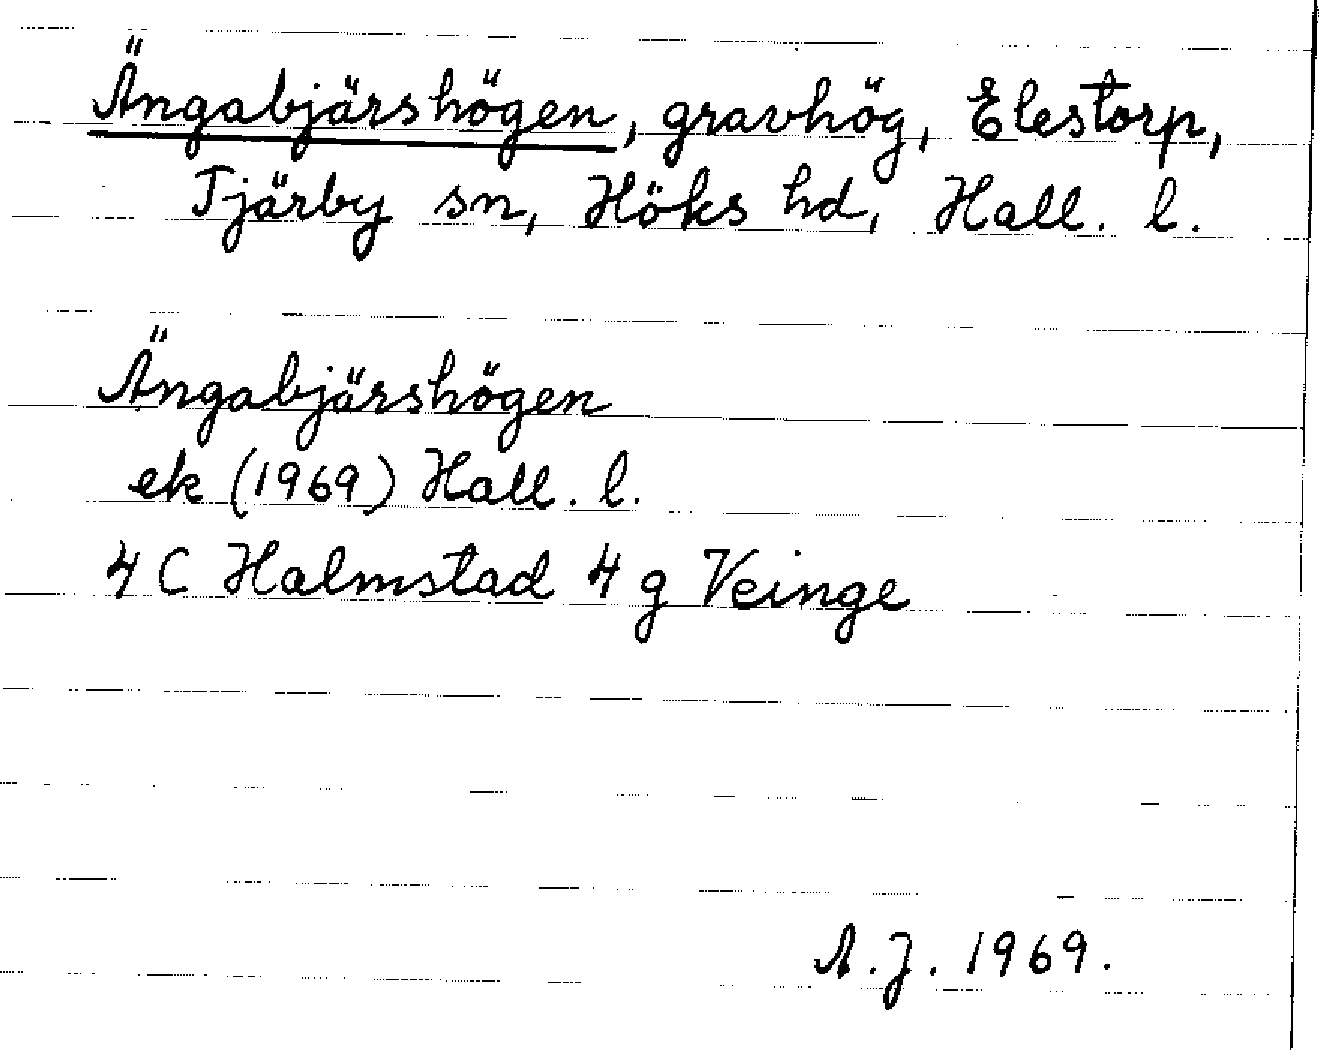 Ängabjärshögen, gravhög, Elestorp,
Tjärby sn, Höks hd, Hall. l.
Ängabjärshögen
ek (1969) Hall. l.
4 C Halmstad 4 g Veinge
A.J. 1969.